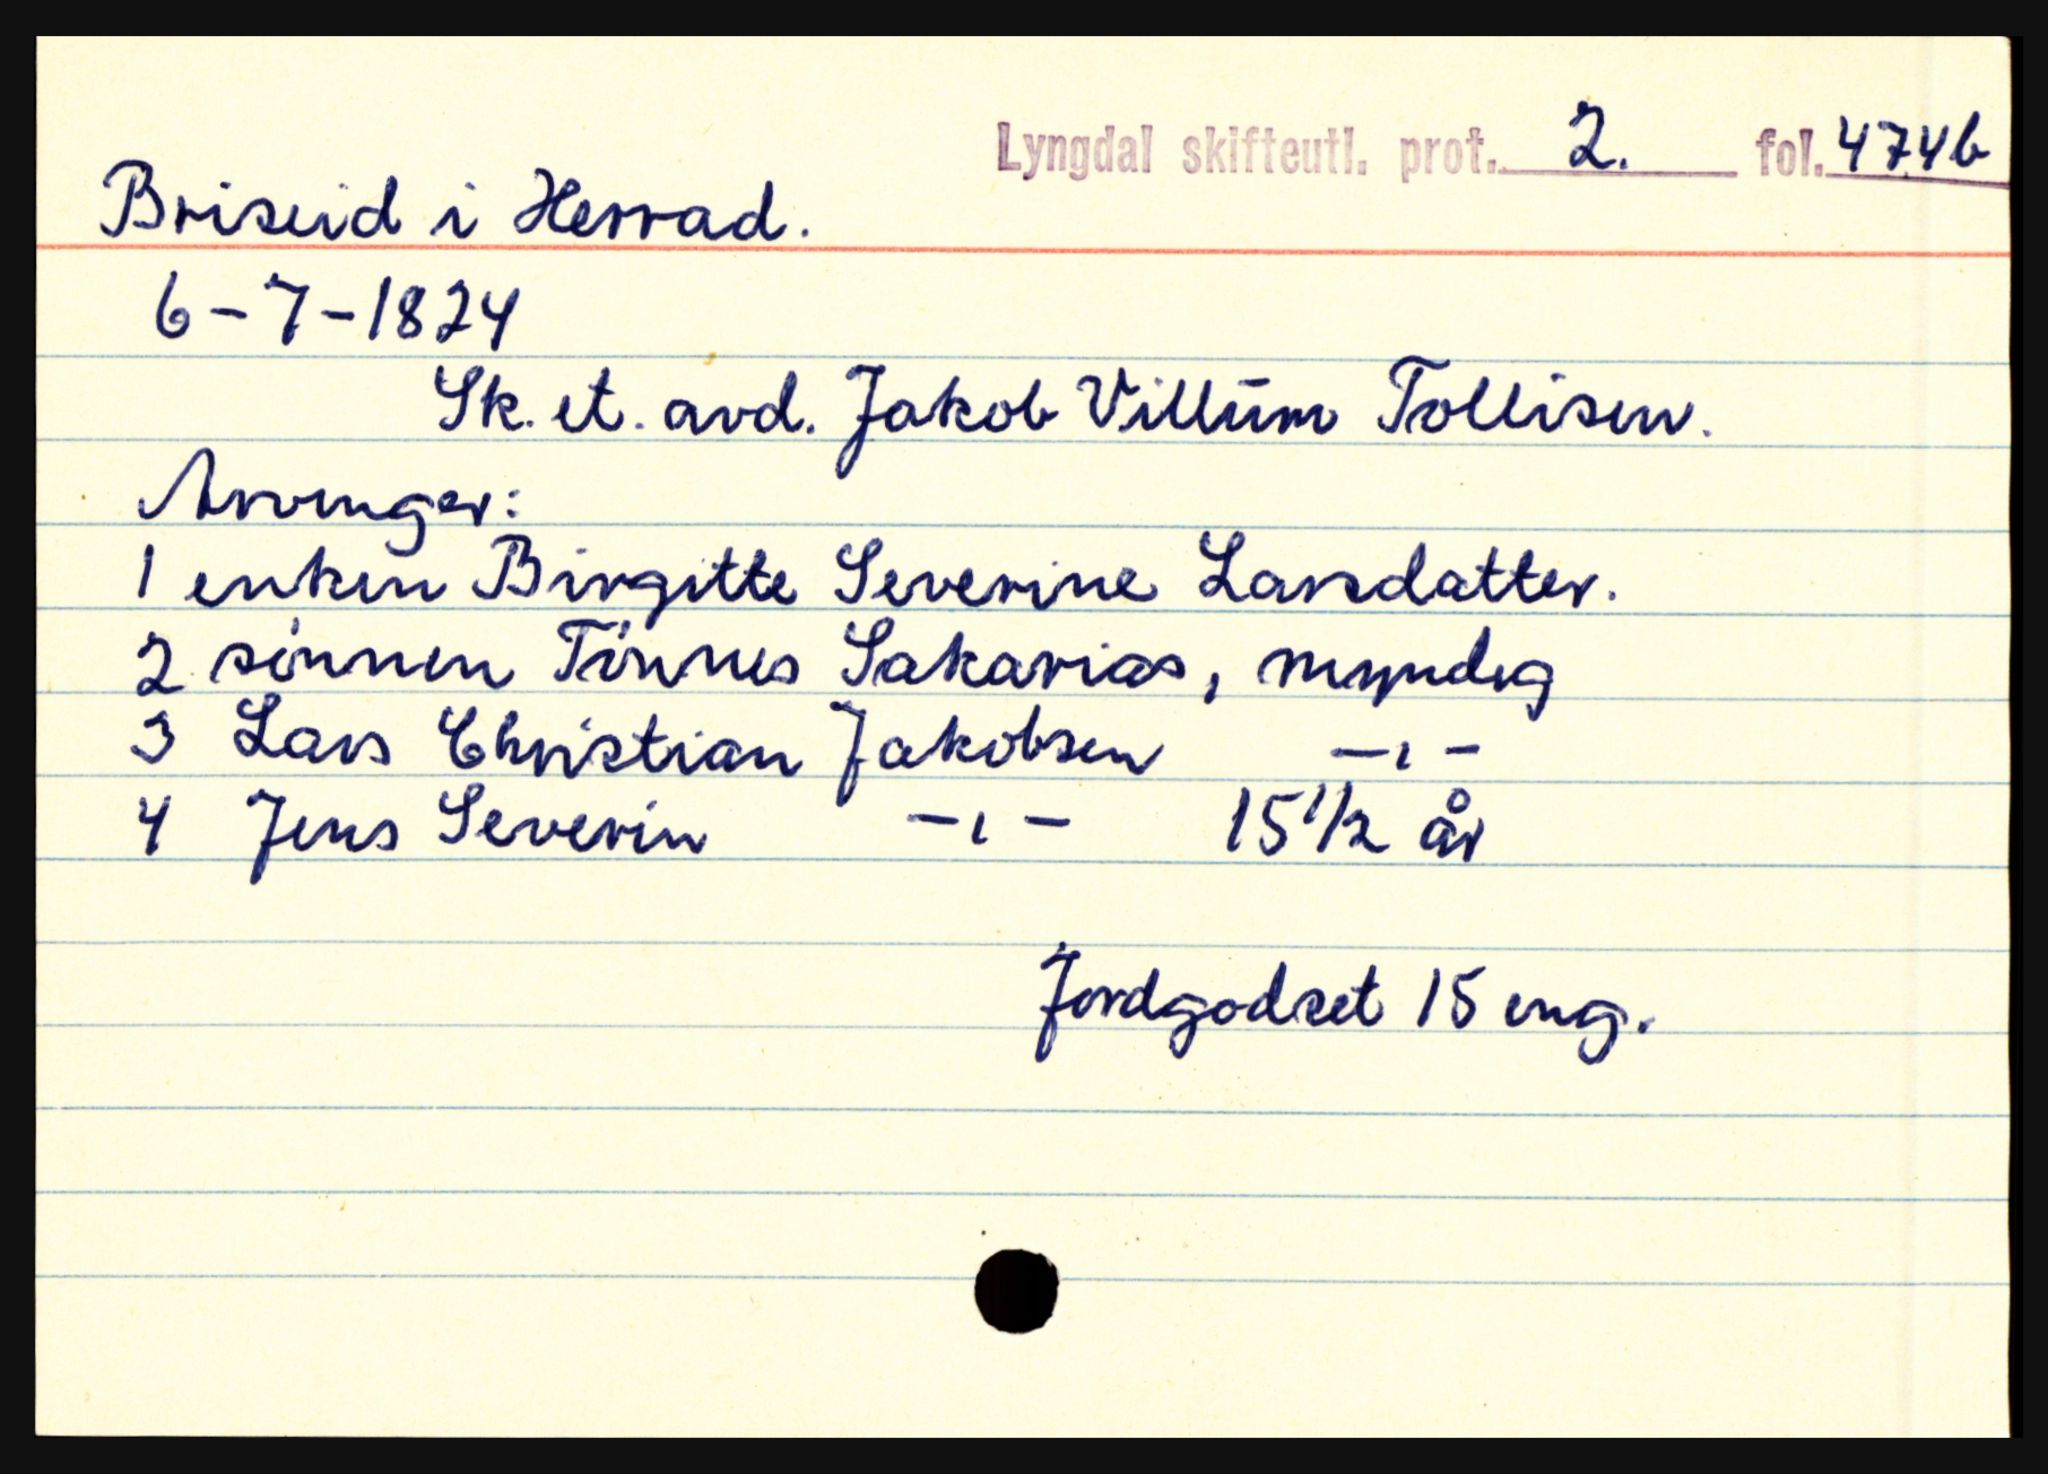 Lyngdal skifteutl. prot. 2. fol. 474b
Briseid i Herrad.
6-7-1824
Sk. et. avd. Jakob Villum Tollisen.
Arvinger:
1 enken Birgitte Severine Larsdatter.
2 sønnen Tønnes Sakarias, myndig
3 Lars Christian Jakobsen —ı—
4 Jens Severin —ı— 15 1/2 år
Jordgodset 15 eng.